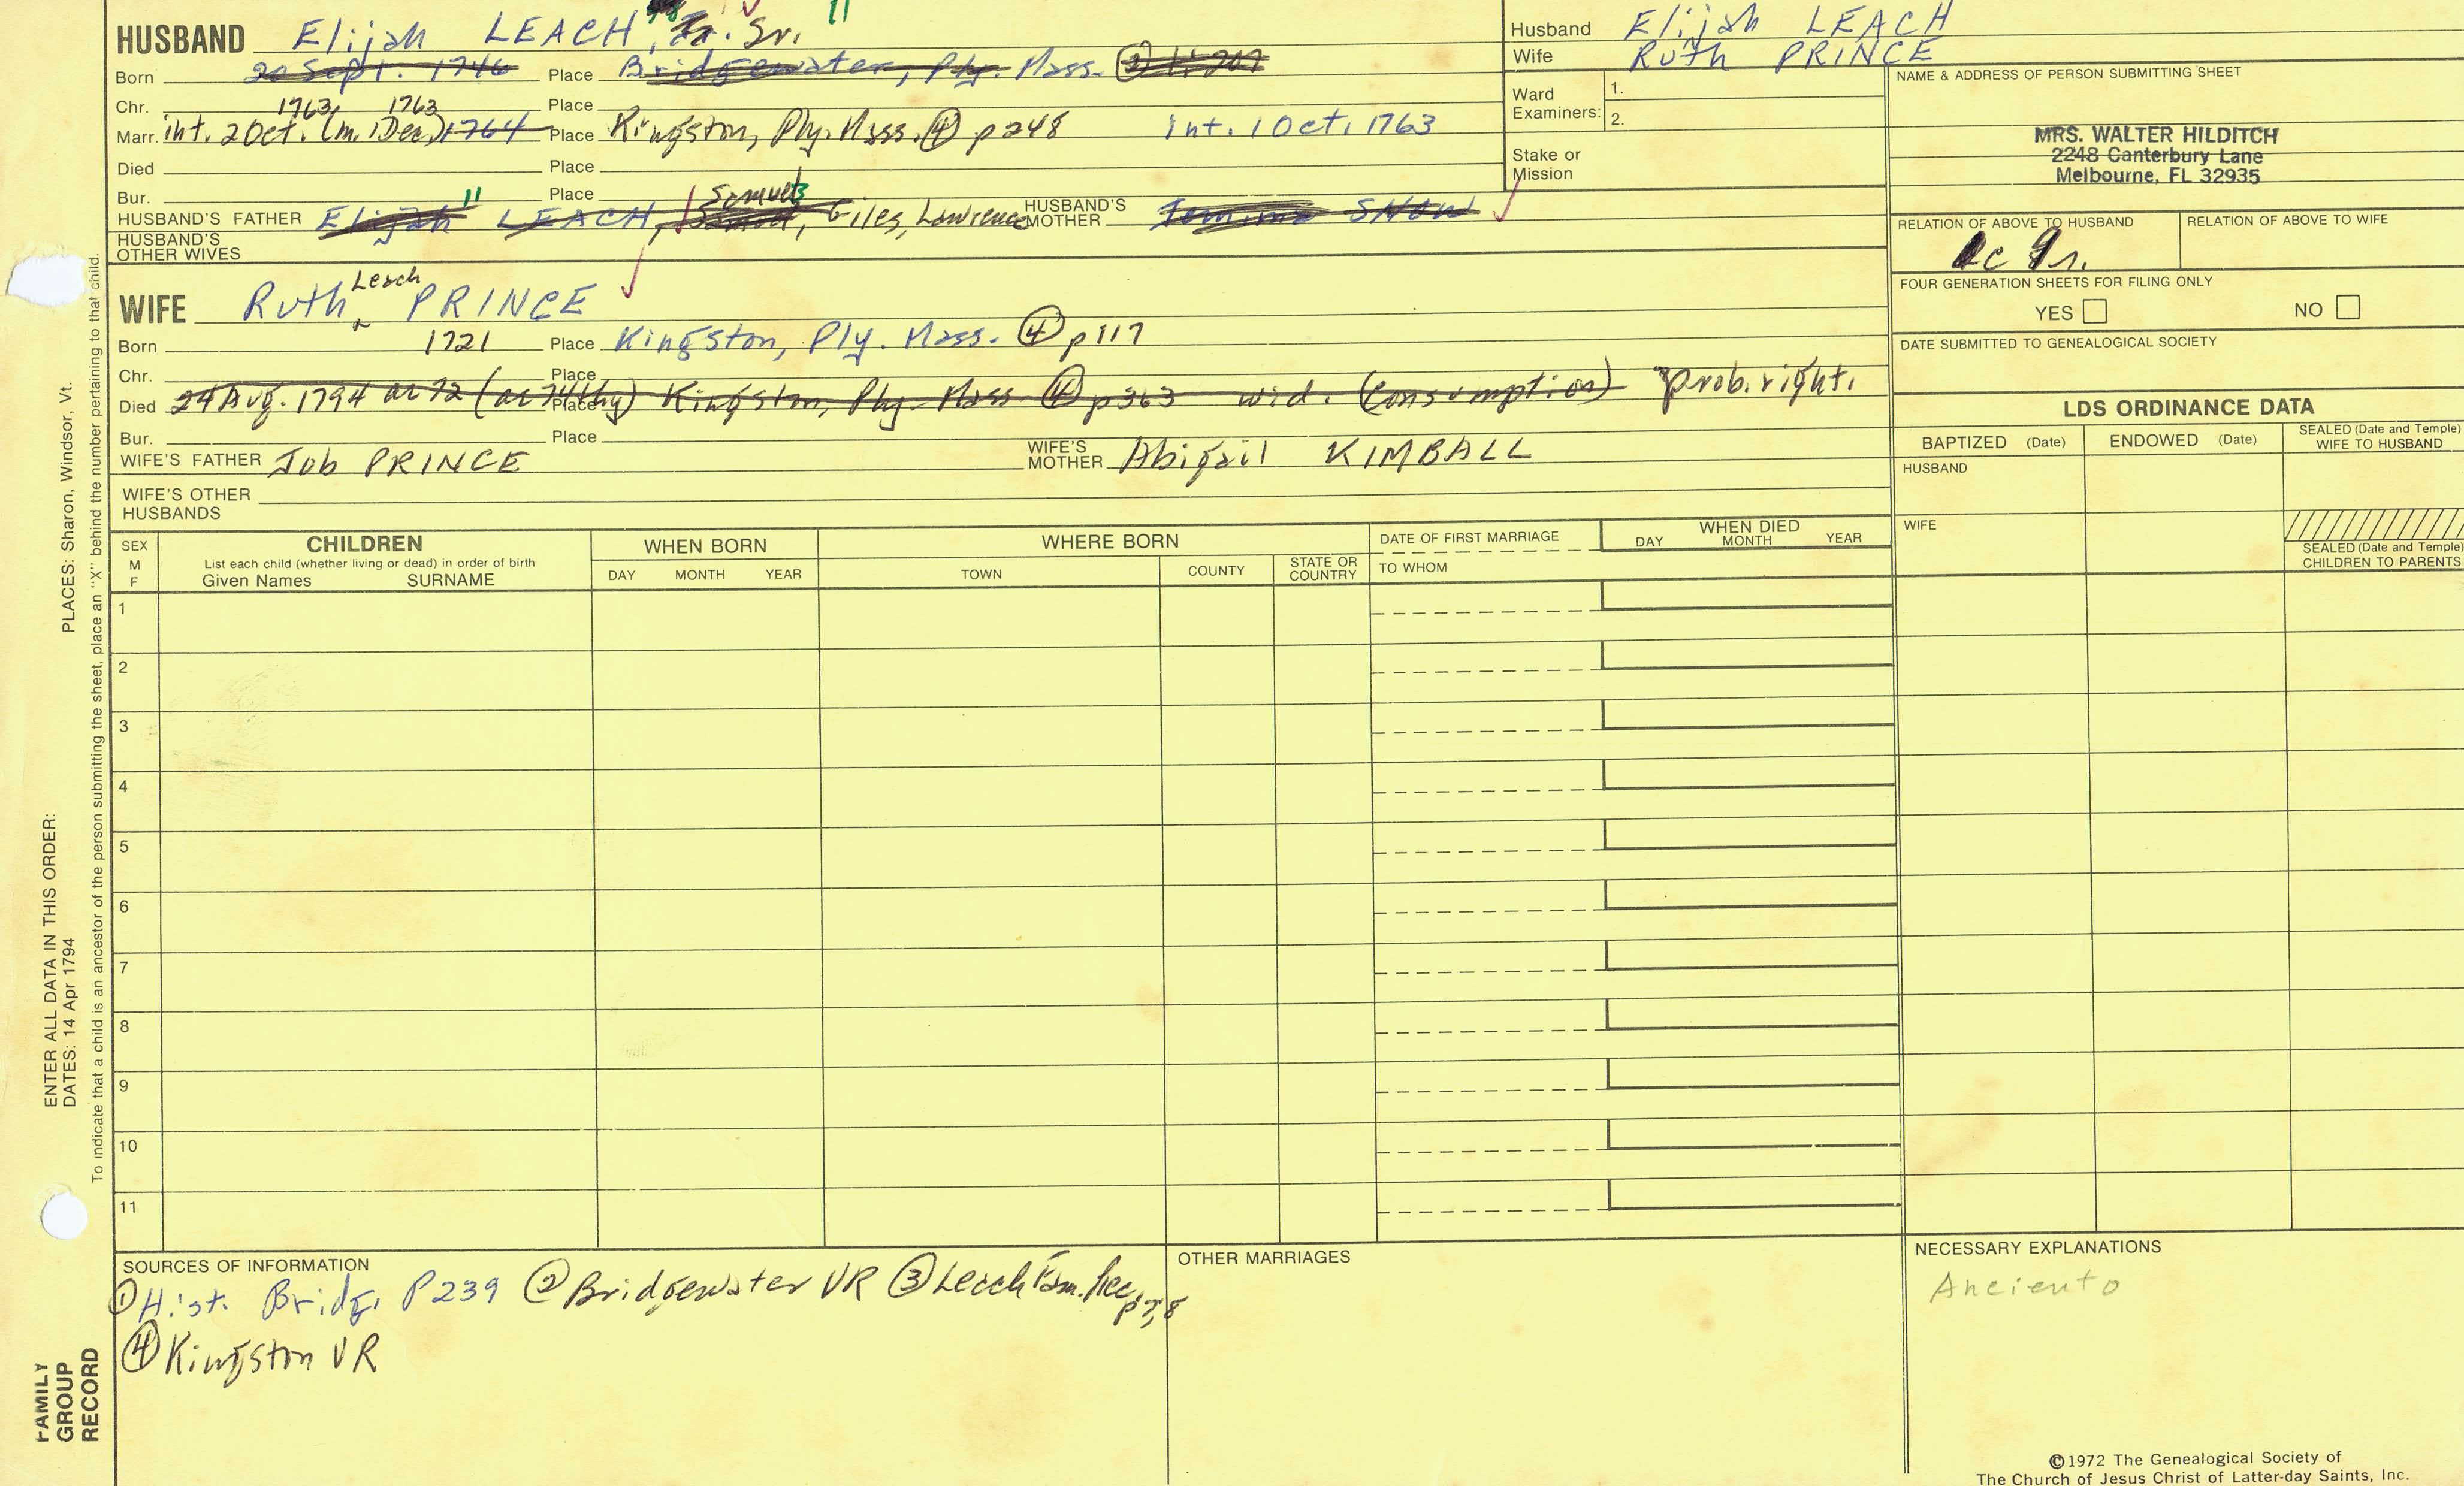 HUSBAND Elijah LEACH, Jr. Sr. 11
Born 20 Sept. 1746 Place Bridgewater, Ply. Mass.
Chr. Place
1763 1763
Marr. int. 2 Oct. (m. 1 Dec.) 1764 Place Kingston, Ply. Mass. ④ p248 Int. 1 Oct. 1763
Died Place
Bur. Place
Samuel 3
11
HUSBAND'S FATHER Elijah LEACH, Samuel, Giles, Lawrence HUSBAND'S MOTHER Jemima SNOW
HUSBAND'S OTHER WIVES
Leach
WIFE Ruth ^ PRINCE
Born 1721 Place Kingston, Ply. Mass. ④ p117
Chr. Place
Died 24 Aug. 1794 ae 72 (ae 74 thy) Place Kingston, Ply. Mass ④ p363 wid. (Consumption) prob. right.
Bur. Place
WIFE'S FATHER Job PRINCE WIFE'S MOTHER Abigail KIMBALL
WIFE'S OTHER HUSBANDS
Husband Elijah LEACH
Wife Ruth PRINCE
Ward Examiners: 1.
2.
Stake or Mission
NAME & ADDRESS OF PERSON SUBMITTING SHEET
MRS. WALTER HILDITCH
2248 Canterbury Lane
Melbourne, FL 32935
RELATION OF ABOVE TO HUSBAND RELATION OF ABOVE TO WIFE
FOUR GENERATION SHEETS FOR FILING ONLY
YES NO
DATE SUBMITTED TO GENEALOGICAL SOCIETY
LDS ORDINANCE DATA
BAPTIZED (Date) ENDOWED (Date) SEALED (Date and Temple) WIFE TO HUSBAND
HUSBAND
WIFE
SEALED (Date and Temple) CHILDREN TO PARENTS
SEX M F
CHILDREN
List each child (whether living or dead) in order of birth
Given Names SURNAME
WHEN BORN
DAY MONTH YEAR
WHERE BORN
TOWN COUNTY STATE OR COUNTRY
DATE OF FIRST MARRIAGE
TO WHOM
WHEN DIED
DAY MONTH YEAR
1
2
3
4
5
6
7
8
9
10
11
SOURCES OF INFORMATION
① Hist. Bridg. P239 ② Bridgewater VR ③ Leach Fam. Rec. p7,8
④ Kingston VR
OTHER MARRIAGES
NECESSARY EXPLANATIONS
Anciento
©1972 The Genealogical Society of
The Church of Jesus Christ of Latter-day Saints, Inc.
PLACES: Sharon, Windsor, Vt.
ENTER ALL DATA IN THIS ORDER:
DATES: 14 Apr 1794
To indicate that a child is an ancestor of the person submitting the sheet, place an "X" behind the number pertaining to that child.
FAMILY
GROUP
RECORD